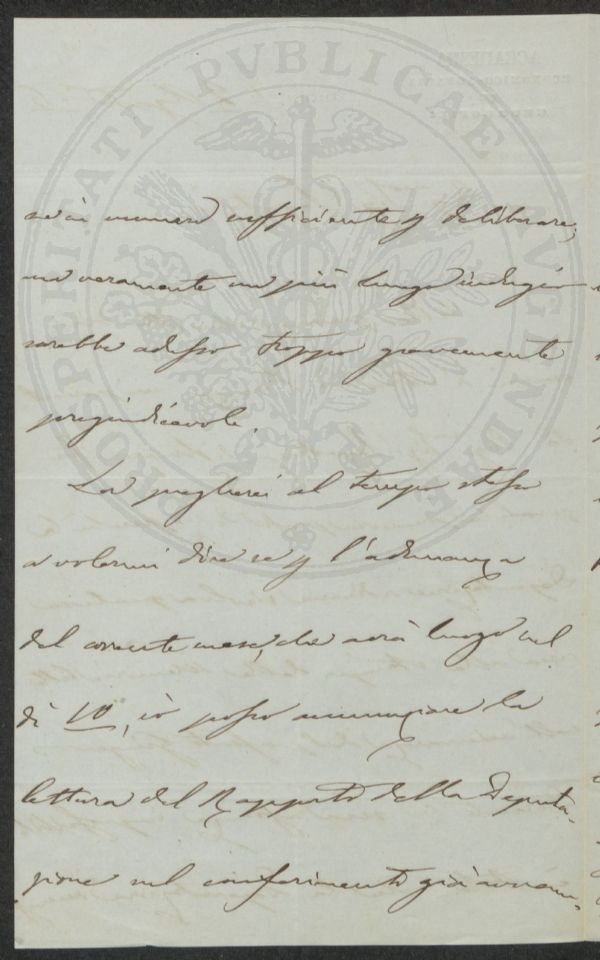 PROSPERITATI PVBLICAE AVGENDAE
numero insufficiente p deliberare;
ma veramente un più lungo indugio
sarebbe adesso troppo gravemente
pregiudicevole.
La pregherei al tempo stesso
a volermi dire se p l'adunanza
del corrente mese, che avrà luogo nel
dì 10, io posso annunziare la
lettura del Rapporto della Deputa-
zione sul conferimento